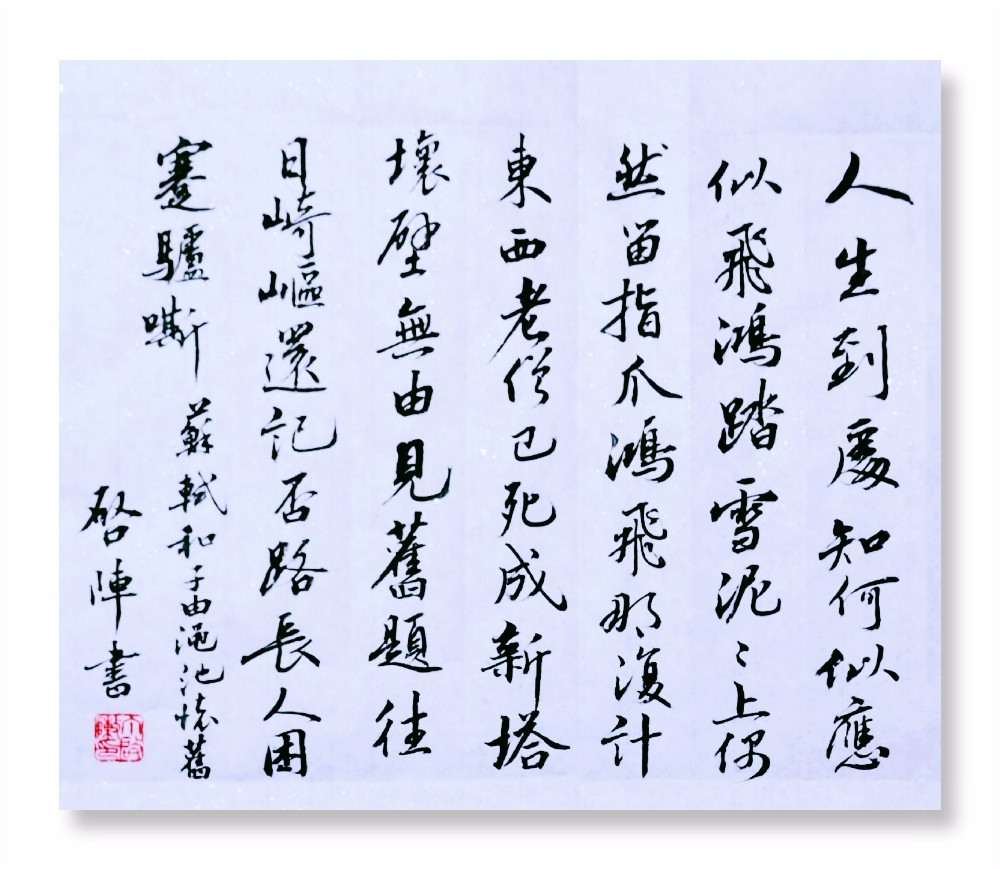 人生到處知何似應
似飛鴻踏雪泥〻上偶
然留指爪鴻飛那復計
東西老僧已死成新塔
壞壁無由見舊題往
日崎嶇還記否路長人困
蹇驢嘶
蘇軾和子由澠池懷舊
啓陣書